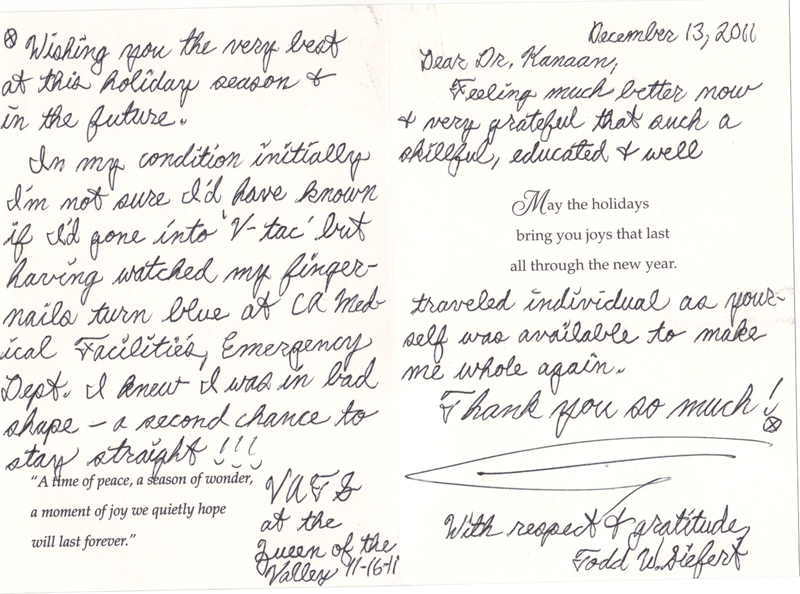 December 13, 2011
Dear Dr. Kanaan,
Feeling much better now
& very grateful that such a
skillful, educated & well
May the holidays
bring you joys that last
all through the new year.
traveled individual as your-
self was available to make
me whole again.
Thank you so much!
⊗
With respect & gratitude,
Todd W. Siefert
⊗ Wishing you the very best
at this holiday season &
in the future.
In my condition initially
I'm not sure I'd have known
if I'd gone into 'V-tac' but
having watched my finger-
nails turn blue at CA Med-
ical Facilities, Emergency
Dept. I knew I was in bad
shape – a second chance to
stay straight !!!
"A time of peace, a season of wonder,
a moment of joy we quietly hope
will last forever."
VATS
at the
Queen of the
Valley 11-16-11